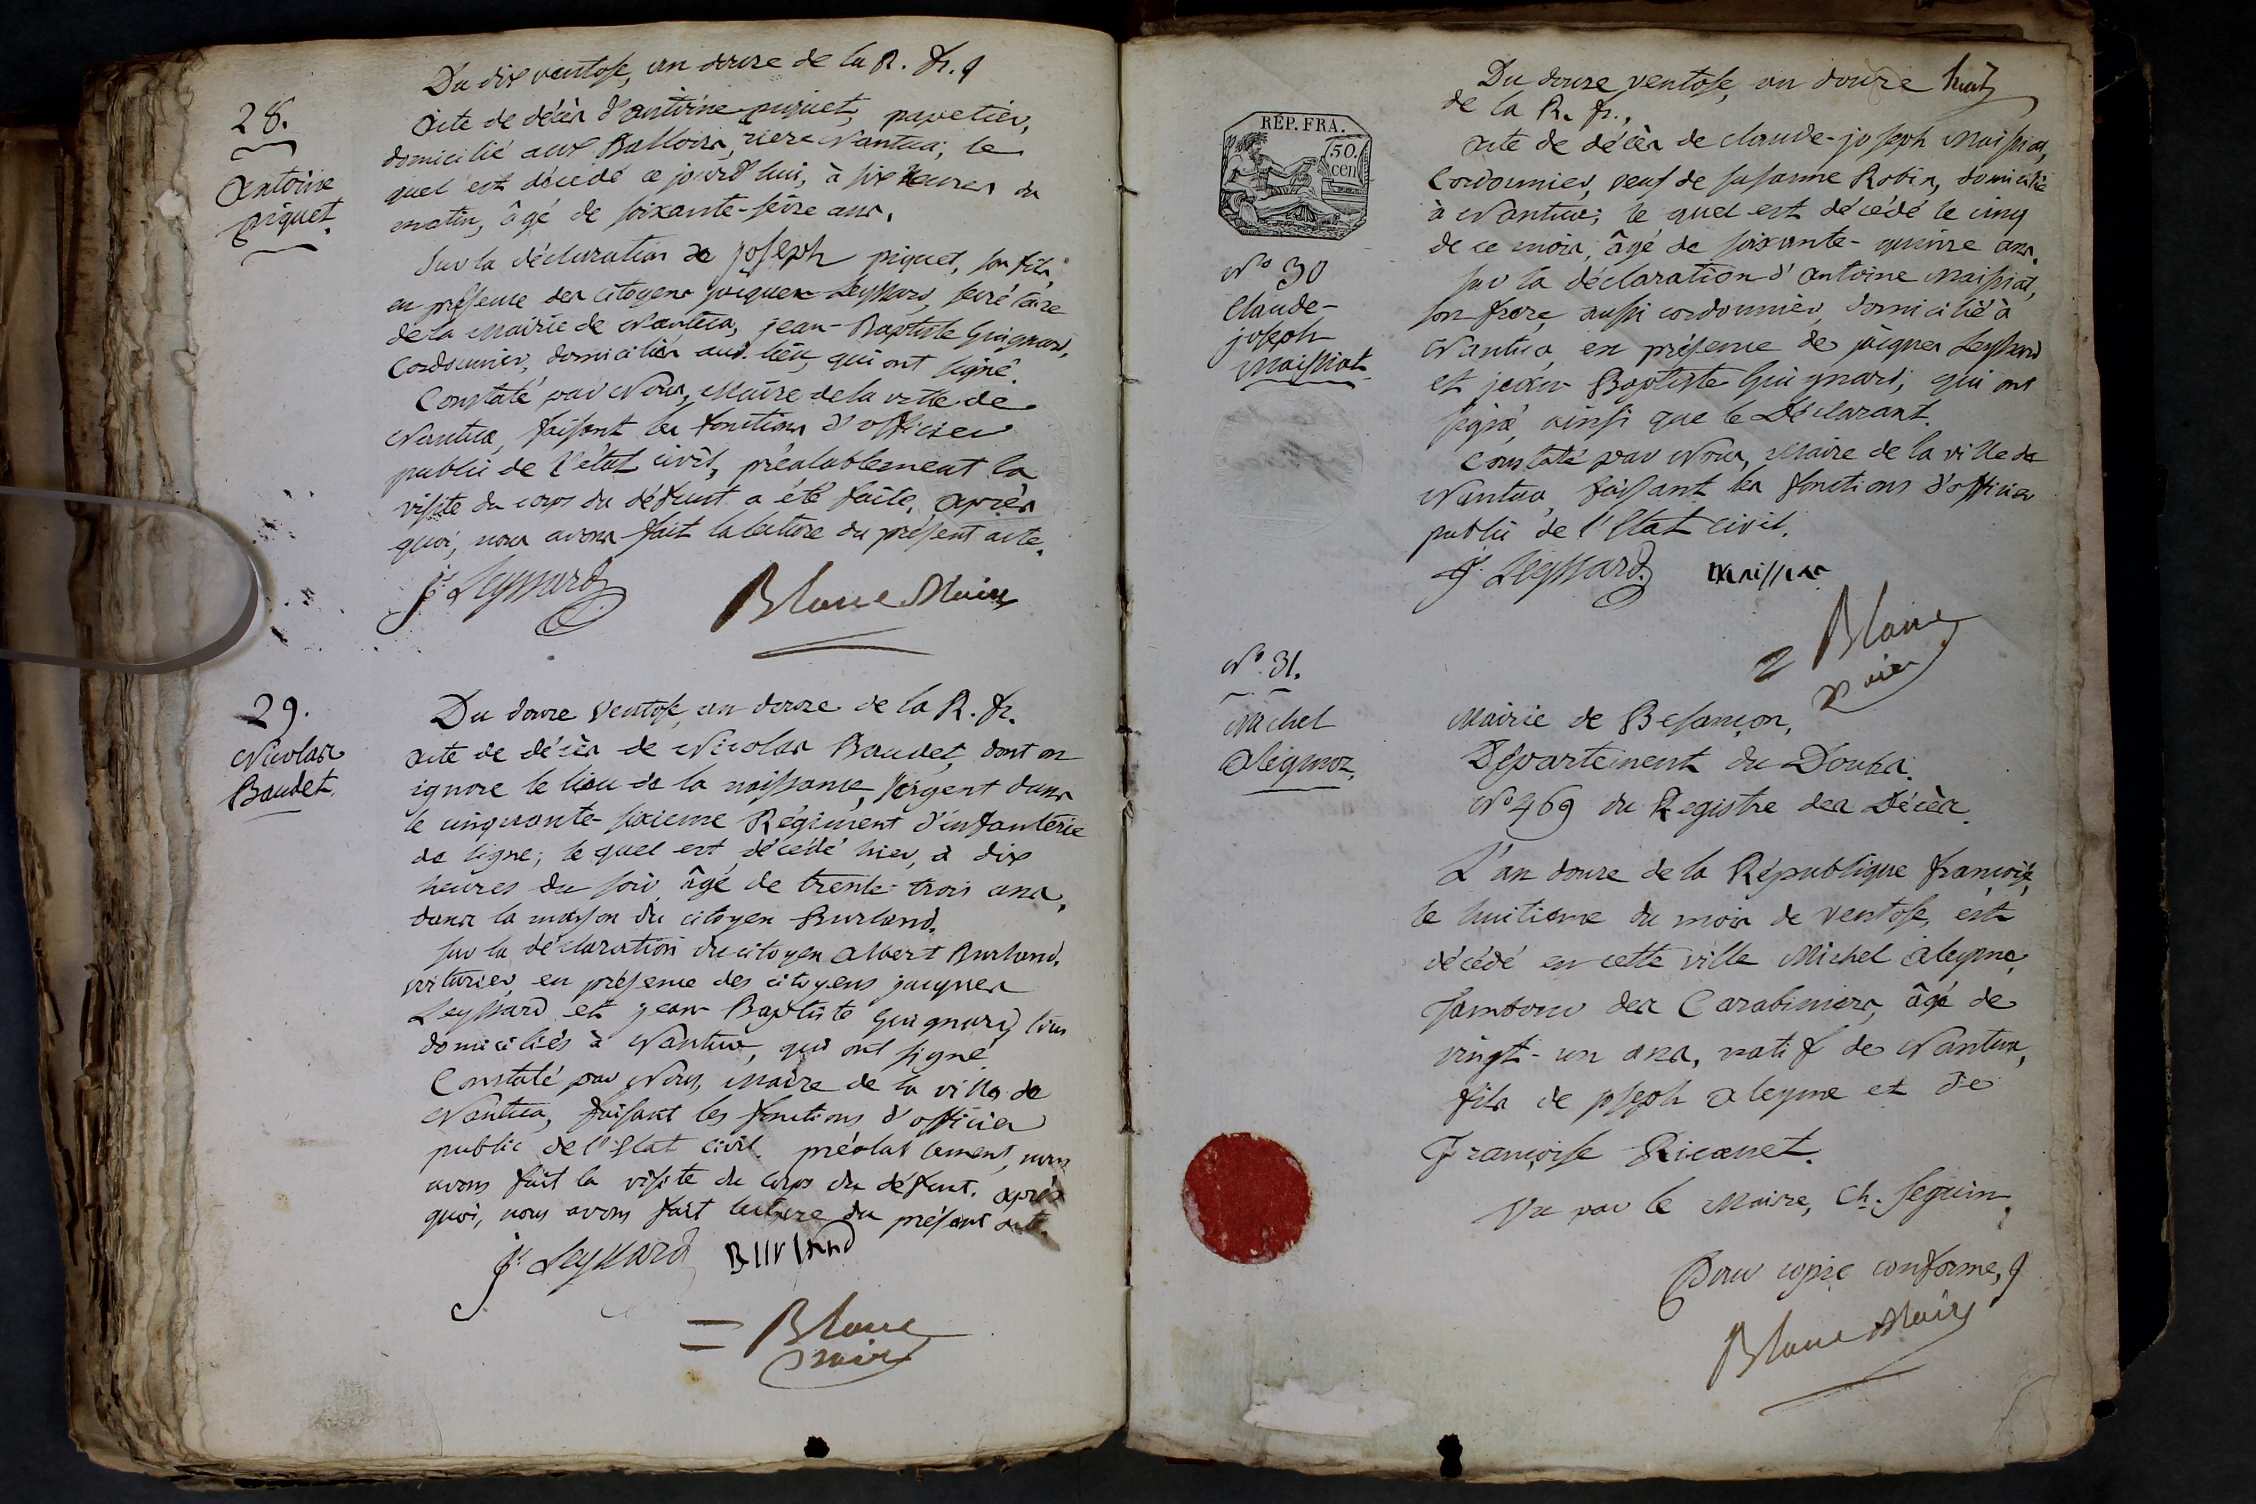 Du dix ventose, an douze de la R. fr.
28.
Antoine
piguet.
Acte de décès d'antoine piguet,
domicilié aux Battoirs, riere Nantua, le
quel est décédé ce jourd'hui, à six heures du
matin, âgé de soixante-seize ans.
Sur la déclaration de joseph piguet, son fils,
en présence des citoyens jacques Leyssard, secrétaire
de la Mairie de Nantua, jean-Baptiste Guignard,
Cordonnier, domiciliés aud. lieu, qui ont signé.
Constaté par Nous, Maire de la ville de
Nantua, faisant les fonctions d'officier
public de l'état civil, préalablement la
visite du corps du défunt a été faite, après
quoi, nous avons fait la lecture du présent acte.
J. Leyssard Blanc Maire
29.
Nicolas
Baudet.
Du douze ventose, an douze de la R. fr.
Acte de décès de Nicolas Baudet, dont on
ignore le lieu de la naissance, sergent dans
le cinquante-sixieme Régiment d'infanterie
de ligne; le quel est décédé hier, à dix
heures du soir, âgé de trente-trois ans,
dans la maison du citoyen Burland.
Sur la déclaration du citoyen Albert Burland,
voiturier, en présence des citoyens jacques
Leyssard et jean Baptiste Guignard, tous
domiciliés à Nantua, qui ont signé.
Constaté par Nous, Maire de la ville de
Nantua, faisant les fonctions d'officier
public de l'Etat civil. préalablement, nous
avons fait la visite du corps du défunt. après
quoi, nous avons fait lecture du présent acte.
J. Leyssard Burland
Blanc
maire
huit
Du douze ventose, an douze
de la R. fr.,
REP. FRA.
50.
cen
No 30
Claude-
joseph
Maissiat
Acte de décès de claude-joseph Maissiat,
Cordonnier, veuf de susanne Robin, domicilié
à Nantua; le quel est décédé le cinq
de ce mois, âgé de soixante-quinze ans.
Sur la déclaration d'antoine Maissiat,
son frere, aussi cordonnier, domicilié à
Nantua, en présence de jacques Leyssard
et jean Baptiste Guignard, qui ont
signé, ainsi que le Déclarant.
Constaté par Nous, Maire de la ville de
Nantua, faisant les fonctions d'officier
public de l'Etat civil.
J. Leyssard. Maissiat
Blanc
maire
No 31.
Michel
Mairie de Besançon,
Département du Doubs.
No 469 du Registre des Décès.
L'an douze de la République françoise,
le huitieme du mois de ventose, est
décédé en cette ville Michel Aleyme,
Tambour des Carabiniers, âgé de
vingt-un ans, natif de Nantua,
fils de joseph Aleyme et de
Françoise Ricanet.
Vu par le Maire, Ch. Seguin.
Pour copie conforme,
Blanc Maire